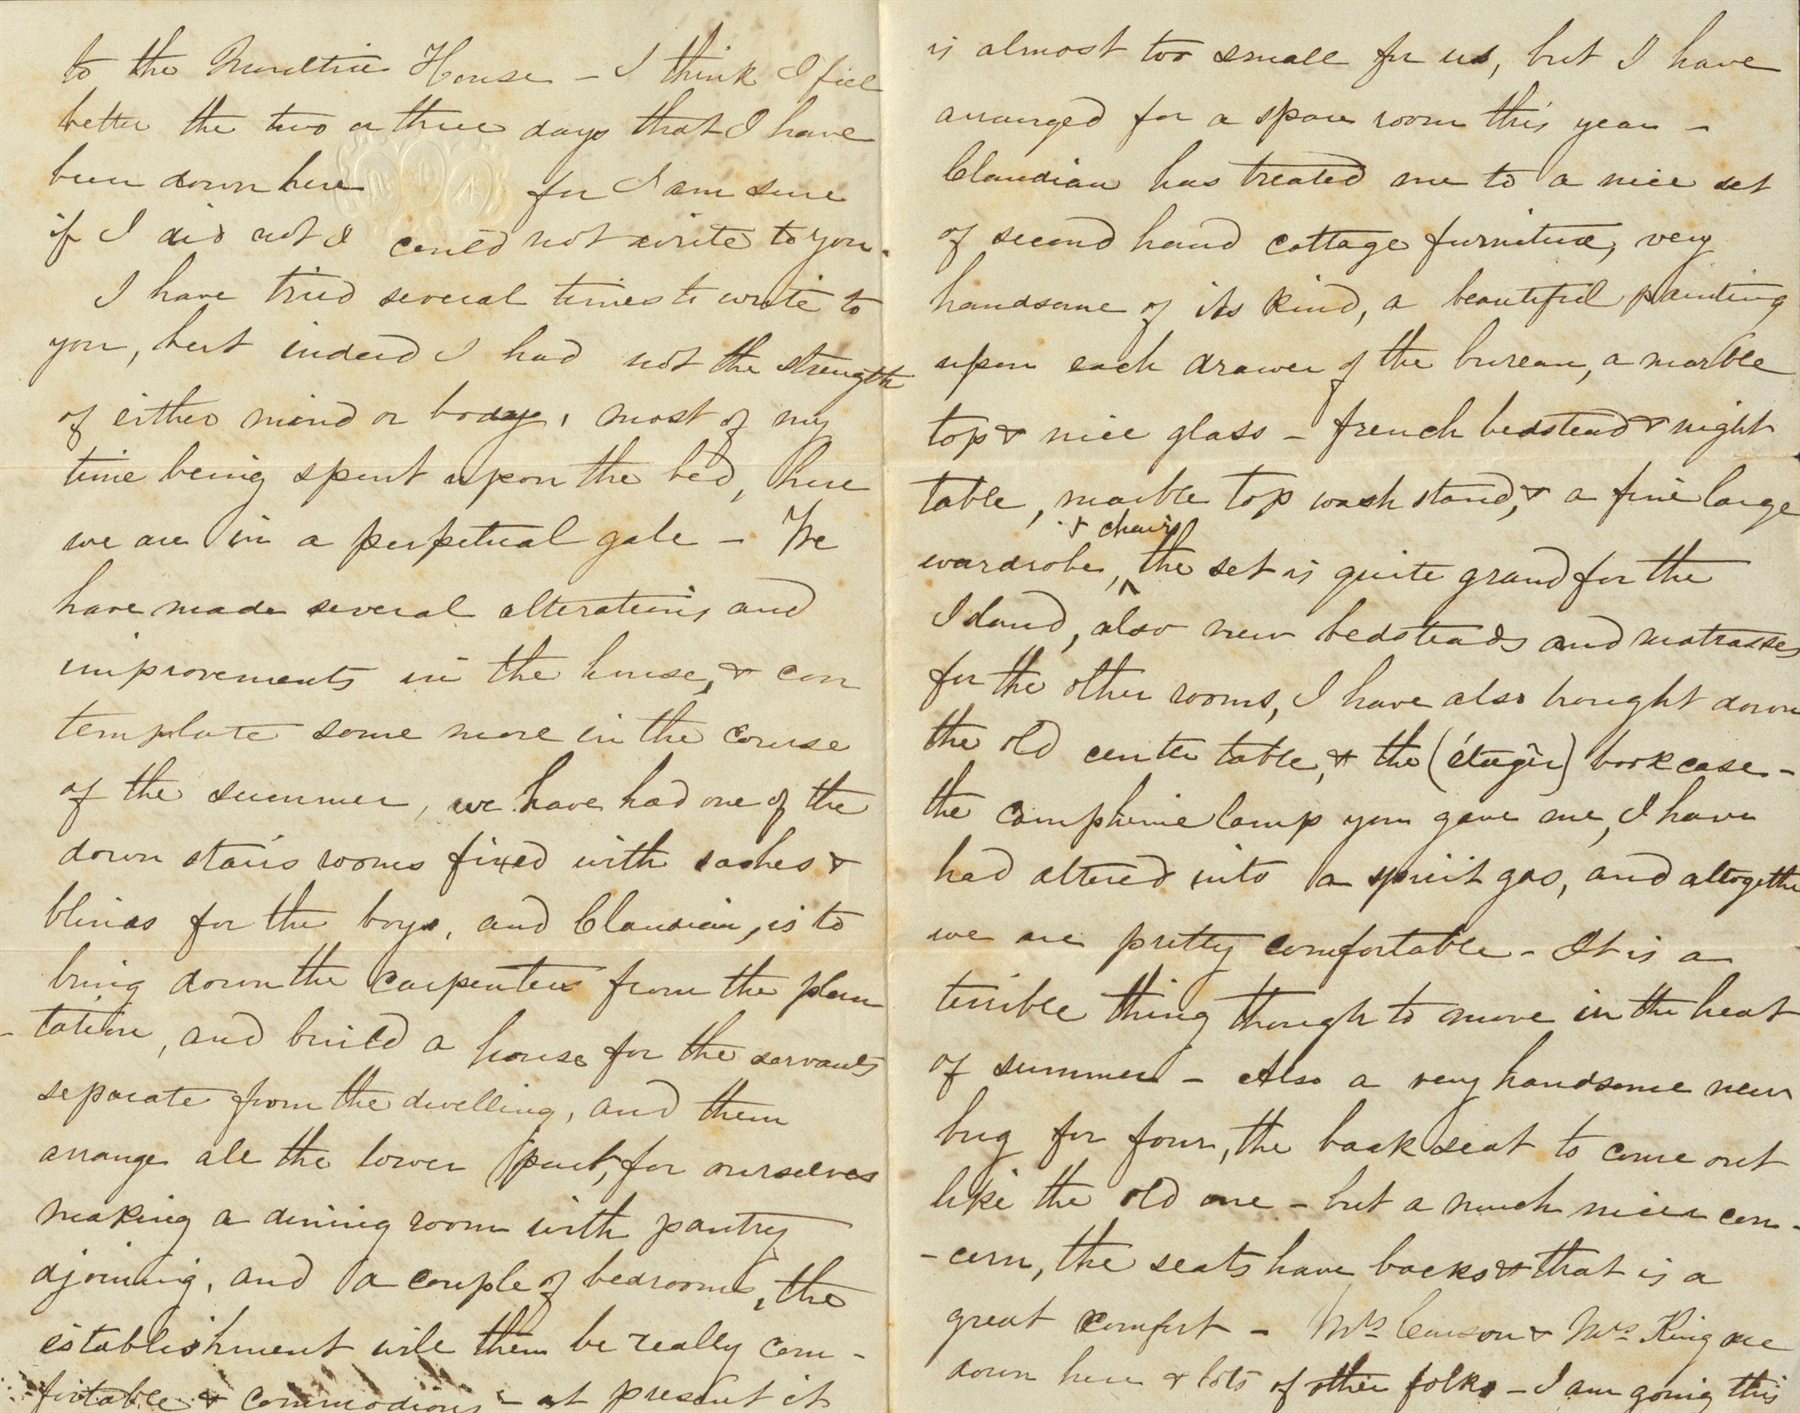 to the Moultrie House – I think I feel
better the two or three days that I have
been down here for I am sure
if I did not I could not write to you.
I have tried several times to write to
you, but indeed I had not the strength
of either mind or body, most of my
time being spent upon the bed, here
we are in a perpetual gale – We
have made several alterations, and
improvements in the house, & con
template some more in the course
of the summer, we have had one of the
down stairs rooms fixed with sashes &
blinds for the boys, and Claudian, is to
bring down the carpenters from the plan
-tation, and build a house for the servants
separate from the dwelling, and then
arrange all the lower part, for ourselves
making a dining room with pantry
ajoining, and a couple of bedrooms, the
establishment will then be really com-
fortable & commodious – at present it
is almost too small for us, but I have
arranged for a spare room this year –
Claudian has treated me to a nice set
of second hand cottage furniture, very
handsome of its kind, a beautiful painting
upon each drawer of the bureau, a marble
top & nice glass – french bedstead & night
table, marble top wash stand, & a fine large
& chairs
wardrobe, ^ the set is quite grand for the
Island, also new bedsteads and matrasses
for the other rooms, I have also brought down
the old center table, & the (étagêr) bookcase –
the camphine lamp you gave me, I have
had altered into a spirit gas, and altogether
we are pretty comfortable – It is a
terrible thing though to move in the heat
of summer – Also a very handsome new
bug for four, the back seat to come out
like the old one – but a much nicer con-
-cern, the seats have backs & that is a
great comfort – Mrs Carson & Mrs King are
down here & lots of other folks – I am going this